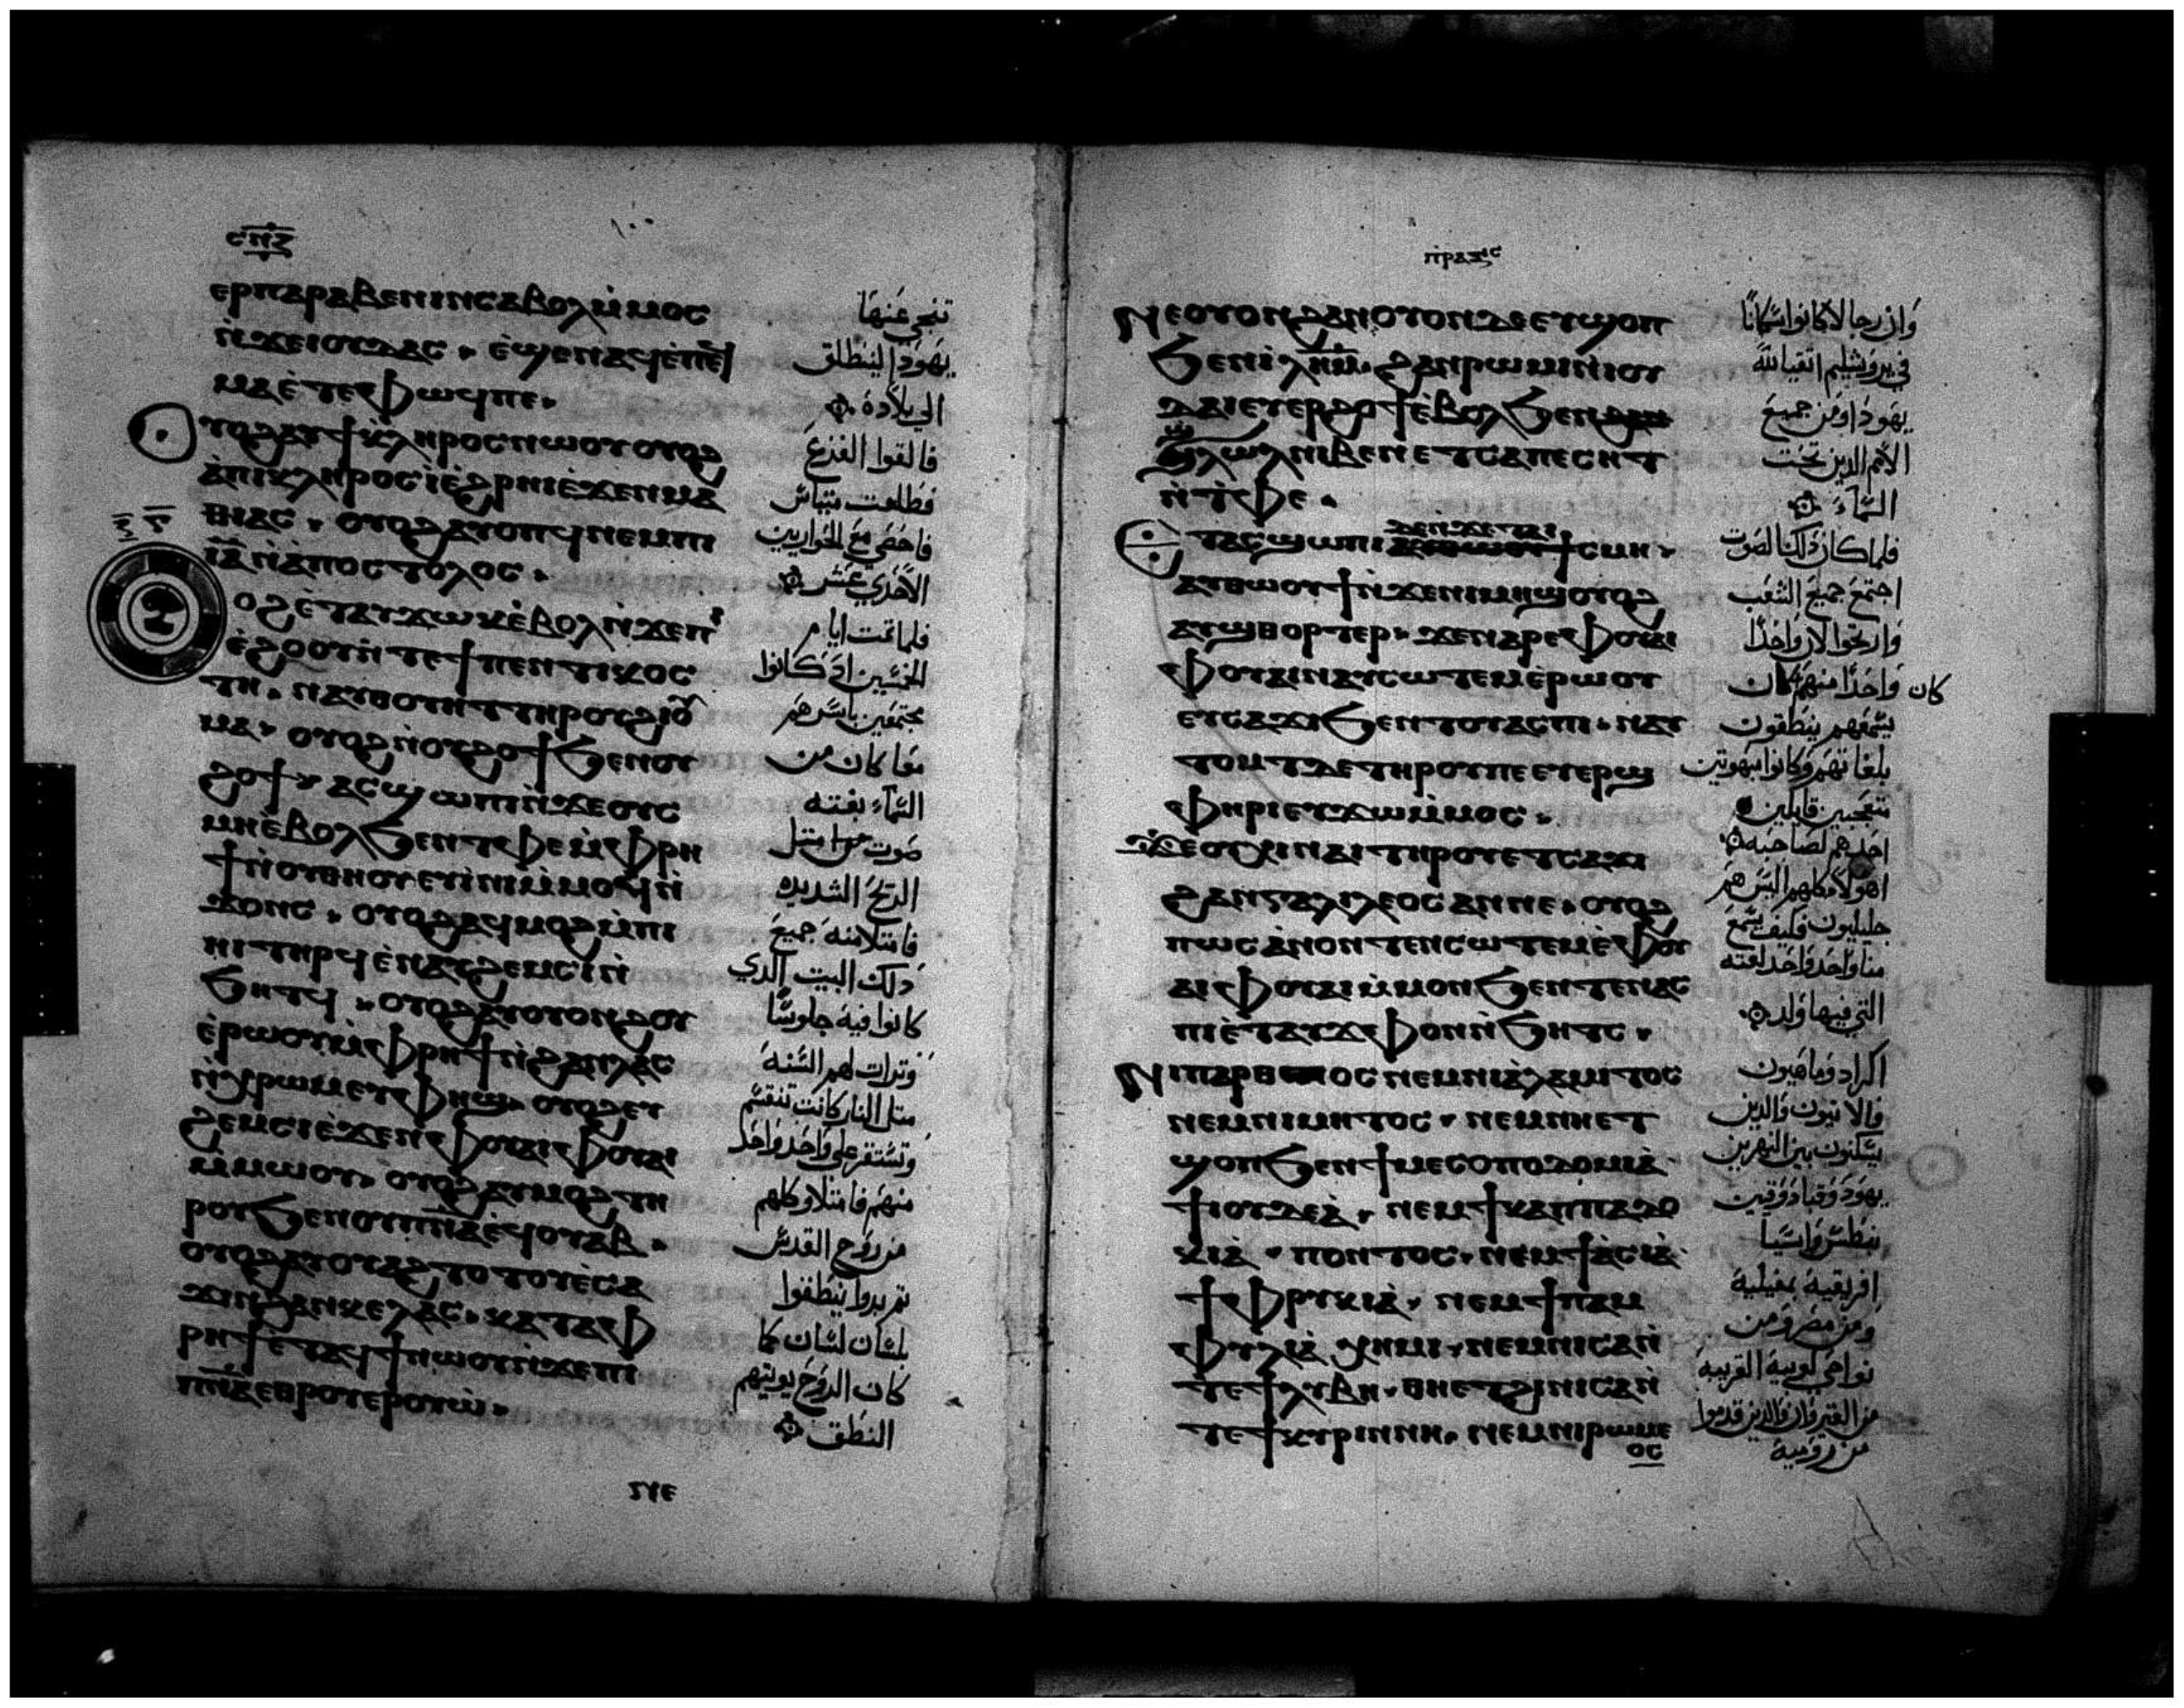 ⲥⲡⲍ
ⲉⲣⲡⲁⲣⲁⲃⲉⲛⲓⲛⲥⲁⲃⲟⲗⲙ̀ⲙⲟⲥ
ⲛ̀ϫⲉⲓⲟⲩⲇⲁⲥ · ⲉ̀ϣⲉⲛⲁϥⲉ̀ⲡⲉϥ
ⲙⲁⲉ̀ⲧⲉⲫⲱϥⲡⲉ ·
ⲩⲟϩⲁⲩϯⲕⲗⲏⲣⲟⲥⲛⲱⲟⲩⲟⲩⲟϩ
ⲁ̀ⲡⲓⲕⲗⲏⲣⲟⲥⲓ̀ⲉ̀ϩⲣⲏⲓⲉ̀ϫⲉⲛⲙⲁ
ⲑⲓⲁⲥ · ⲟⲩⲟϩⲁⲩⲟⲡϥⲛⲉⲙⲡⲓ
ⲓ̅ⲁ̅ⲛ̀ⲁ̀ⲡⲟⲥⲧⲟⲗⲟⲥ ·
ⲟϩⲉ̀ⲧⲁⲩϫⲱⲕⲉ̀ⲃⲟⲗⲛ̀ϫⲉⲡⲓ
ⲉ̀ϩⲟⲟⲩⲛ̀ⲧⲉϯⲡⲉⲛⲧⲓⲕⲟⲥ
ⲧⲏ · ⲛⲁⲩⲑⲟⲩⲏⲧⲧⲏⲣⲟⲩϩⲓⲟⲩ
ⲙⲁ · ⲟⲩⲟϩⲛ̀ⲟⲩϩⲟϯϧⲉⲛⲟⲩ
ϩⲟϯ · ⲁⲥϣⲱⲡⲓⲛ̀ϫⲉⲟⲩⲥ
ⲙⲏⲉ̀ⲃⲟⲗϧⲉⲛⲧⲫⲉⲙ̀ⲫⲣⲏ
ϯⲛ̀ⲟⲩⲑⲏⲟⲩⲉⲩⲓ̀ⲛⲓⲙ̀ⲙⲟϥⲛ̀
ϫⲟⲛⲥ · ⲟⲩⲟϩⲁϥⲙⲟϩⲙ̀ⲡⲓ
ⲏⲓⲧⲏⲣϥⲉ̀ⲛⲁⲩϩⲉⲙⲥⲓⲛ̀
ϧⲏⲧϥ · ⲟⲩⲟϩⲁⲩⲟⲩⲟⲛϩⲟⲩ
ⲉ̀ⲣⲱⲟⲩⲙ̀ⲫⲣⲏϯⲛ̀ϩⲁⲛⲗⲁⲥ
ⲛ̀ⲭⲣⲱⲙⲉⲩⲫⲏϣ · ⲟⲩⲟϩⲉⲩ
ϩⲉⲙⲥⲓⲉ̀ϫⲉⲛⲫⲟⲩⲁⲓⲫⲟⲩⲁⲓ
ⲙ̀ⲙⲱⲟⲩ · ⲟⲩⲟϩⲁⲩⲙⲟϩⲧⲏ
ⲣⲟⲩϧⲉⲛⲟⲩⲡⲛ̅ⲁ̅ⲉϥⲟⲩⲁⲃ ·
ⲟⲩⲟϩⲁⲩⲟⲩⲁϩⲧⲟⲧⲟⲩⲉ̀ⲥⲁ
ϫⲓⲛϩⲁⲛⲕⲉⲗⲁⲥ · ⲕⲁⲧⲁⲫ
ⲣⲏϯⲉ̀ⲧⲁϥϯⲛⲱⲟⲩⲛ̀ϫⲉⲡⲓ
ⲡⲛ̅ⲁ̅ⲉⲑⲣⲟⲩⲉⲣⲟⲩⲱ̀ ·
تنحي عنها
يهودا لينطلق
الي بلاده
فالقوا القزع
فطلعت متياس
فاحصي مع الحواريين
الاحدي عشر
فلما تمت ايام
الخمسين اذ كانوا
مجتمعين باسرهم
معا كان من
السماء بغته
صوت مثل
الريح الشديده
فامتلا منه جميع
ذلك البيت الذي
كانوا فيه جلوسا
وترات لهم السنه
متل النار كانت تنقسم
وتستقر علي واحد واحد
منهم فامتلاو كلهم
من روح القدس
تم بدوا ينطقوا
بلسان لسان كما
كان الروح يوتيهم
النطق
ⲡⲣⲁⲝⲓⲥ
ⲛⲉⲟⲩⲟⲛϩⲁⲛⲟⲩⲟⲛⲇⲉⲉⲩϣⲟⲡ
ϧⲉⲛⲓ̀ⲗ̅ⲏ̅ⲙ̅ · ϩⲁⲛⲣⲱⲙⲓⲛⲓⲟⲩ
ⲇⲁⲓⲉⲩⲉⲣϩⲟϯⲉ̀ⲃⲟⲗϧⲉⲛ
ϣⲗⲱⲗⲛⲓⲃⲉⲛⲉⲧⲥⲁⲡⲉⲥⲏⲧ
ⲛ̀ⲧⲫⲉ ·
ⲧⲁⲥϣⲱⲡⲓ ϯⲥⲙⲏ ·
ⲁⲩⲑⲱⲟⲩϯⲛ̀ϫⲉⲛⲓⲙⲏϣⲟⲩⲟϩ
ⲁⲩϣⲑⲟⲣⲧⲉⲣ · ϫⲉⲛⲁⲣⲉⲫⲟⲩⲁⲓ
ⲫⲟⲩⲁⲓⲛⲁⲩⲥⲱⲧⲉⲙⲉ̀ⲣⲱⲟⲩ
ⲉⲩⲥⲁϫⲓϧⲉⲛⲧⲟⲩⲁⲥⲡⲓ · ⲛⲁⲩ
ⲧⲟⲙⲧⲇⲉⲧⲏⲣⲟⲩⲡⲉⲉⲩⲉⲣϣ
ⲫⲏⲣⲓⲉⲩϫⲱⲙ̀ⲙⲟⲥ ·
ϫⲉⲟⲩⲭⲓⲛⲁⲓⲧⲏⲣⲟⲩⲉⲧⲥⲁϫⲓ
ϩⲁⲛⲅⲁⲗⲓⲗⲉⲟⲥⲁⲛⲛⲉ · ⲟⲩⲟϩ
ⲡⲱⲥⲁ̀ⲛⲟⲛⲧⲉⲛⲥⲱⲧⲉⲙⲉ̀ⲫⲟⲩ
ⲁⲓⲫⲟⲩⲁⲓⲙ̀ⲙⲟⲛϧⲉⲛⲧⲉⲛⲁⲥ
ⲡⲓⲉ̀ⲧⲁⲩϫⲫⲟⲛⲛ̀ϧⲏⲧⲥ ·
ⲛⲓⲡⲁⲣⲑⲟⲥⲛⲉⲙⲛⲓⲁ̀ⲗⲁⲙⲓⲧⲟⲥ
ⲛⲉⲙⲛⲓⲙⲏⲧⲟⲥ · ⲛⲉⲙⲛⲏⲉⲧ
ϣⲟⲡϧⲉⲛϯⲙⲉⲥⲟⲡⲟⲇⲟⲙⲓⲁ̀
ϯⲓⲟⲩⲇⲉⲁ̀ · ⲛⲉⲙϯⲕⲁⲡⲡⲁⲇⲟ
ⲕⲓⲁ̀ · ⲡⲟⲛⲧⲟⲥ · ⲛⲉⲙϯⲁ̀ⲥⲓⲁ̀
ϯⲫⲣⲩⲕⲓⲁ̀ · ⲛⲉⲙϯⲡⲁⲙ
ⲫⲩⲗⲓⲁ̀ ⲭⲏⲙⲓ · ⲛⲉⲙⲛⲓⲥⲁⲛ̀
ⲧⲉϯⲗⲩⲃⲏ · ⲑⲏⲉⲧϩⲓⲛⲓⲥⲁⲛ̀
ⲧⲉϯⲕⲩⲣⲓⲛⲛⲏ · ⲛⲉⲙⲛⲓⲣⲱⲙⲉ
ⲟⲥ
وان رجالا كانوا سكانا
في يروشليم اتقيا لله
يهودا ومن جميع
الامم الدين تحت
السماء
فلما كان ذلك الصوت
اجتمع جميع الشعب
وارتجوا لان واحدا
كان واحدا منهم كان
يسمعهم ينطقون
بلغاتهم وكانوا مبهوتين
متعجبين قايلين
احدهم لصاحبه
اهولا كلهم اليس هم
جليليون فكيف يسمع
منا واحد واحد لغته
التي فيها ولد
اكراد وماهيون
والانيون والدين
يسكنون بين النهرين
يهود وقبادوقيين
بنطس واسيا
افريقية بمفيلية
ومن مصر ومن
نواحي لوبية القريبة
من القيروان والدين قدموا
من رومية